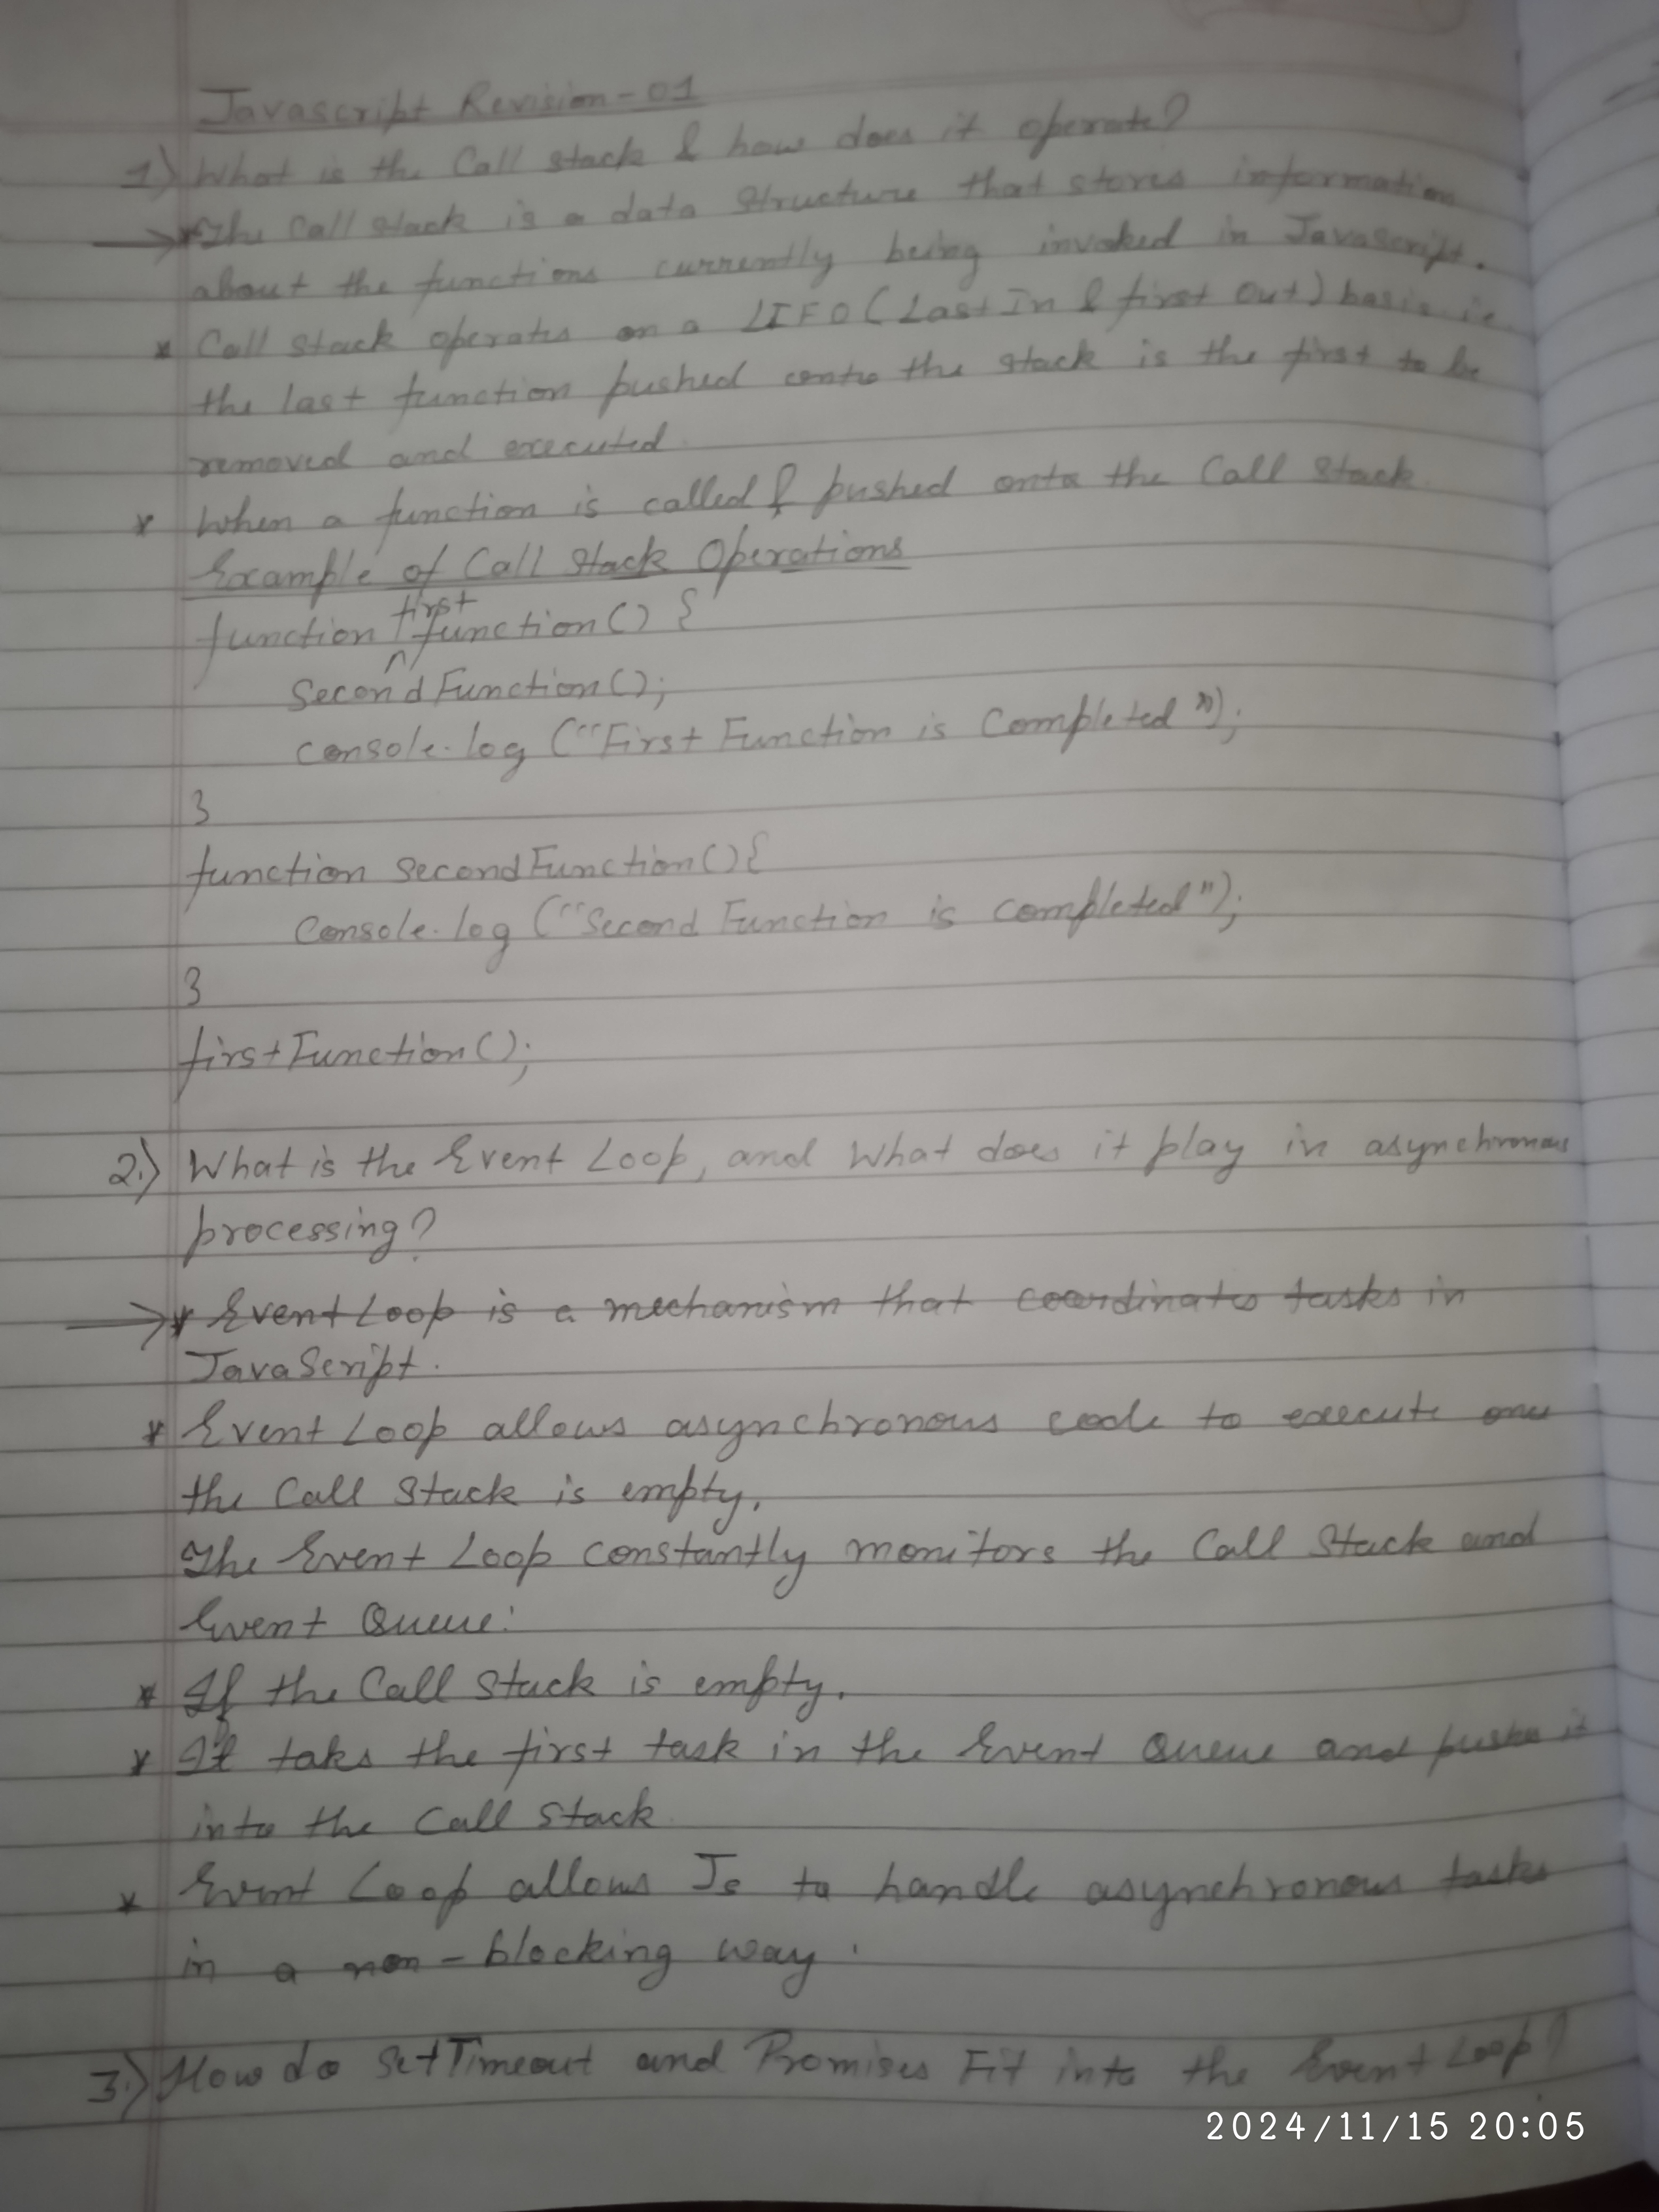 Javascript Revision-01
1) What is the Call stack & how does it operate?
→ * The Call stack is a data structure that stores information
about the functions currently being invoked in Javascript.
* Call stack operates on a LIFO (Last In & first Out) basis i.e
the last function pushed onto the stack is the first to be
removed and executed.
* When a function is called & pushed onto the Call stack.
Example of Call Stack Operations
function firstfunction() {
SecondFunction();
console.log ("First Function is Completed");
}
function secondFunction(){
Console.log ("Second Function is completed");
}
firstFunction();
2.) What is the Event Loop, and What does it play in asynchronous
processing?
→ * Event Loop is a mechanism that coordinates tasks in
JavaScript.
* Event Loop allows asynchronous code to execute once
the Call Stack is empty.
The Event Loop constantly monitors the Call Stack and
Event Queue:
* If the Call Stack is empty.
* It takes the first task in the Event Queue and pushes it
into the Call Stack.
* Event Loop allows Js to handle asynchronous tasks
in a non-blocking way.
3.) How do SetTimeout and Promises Fit into the Event Loop?
2024/11/15 20:05